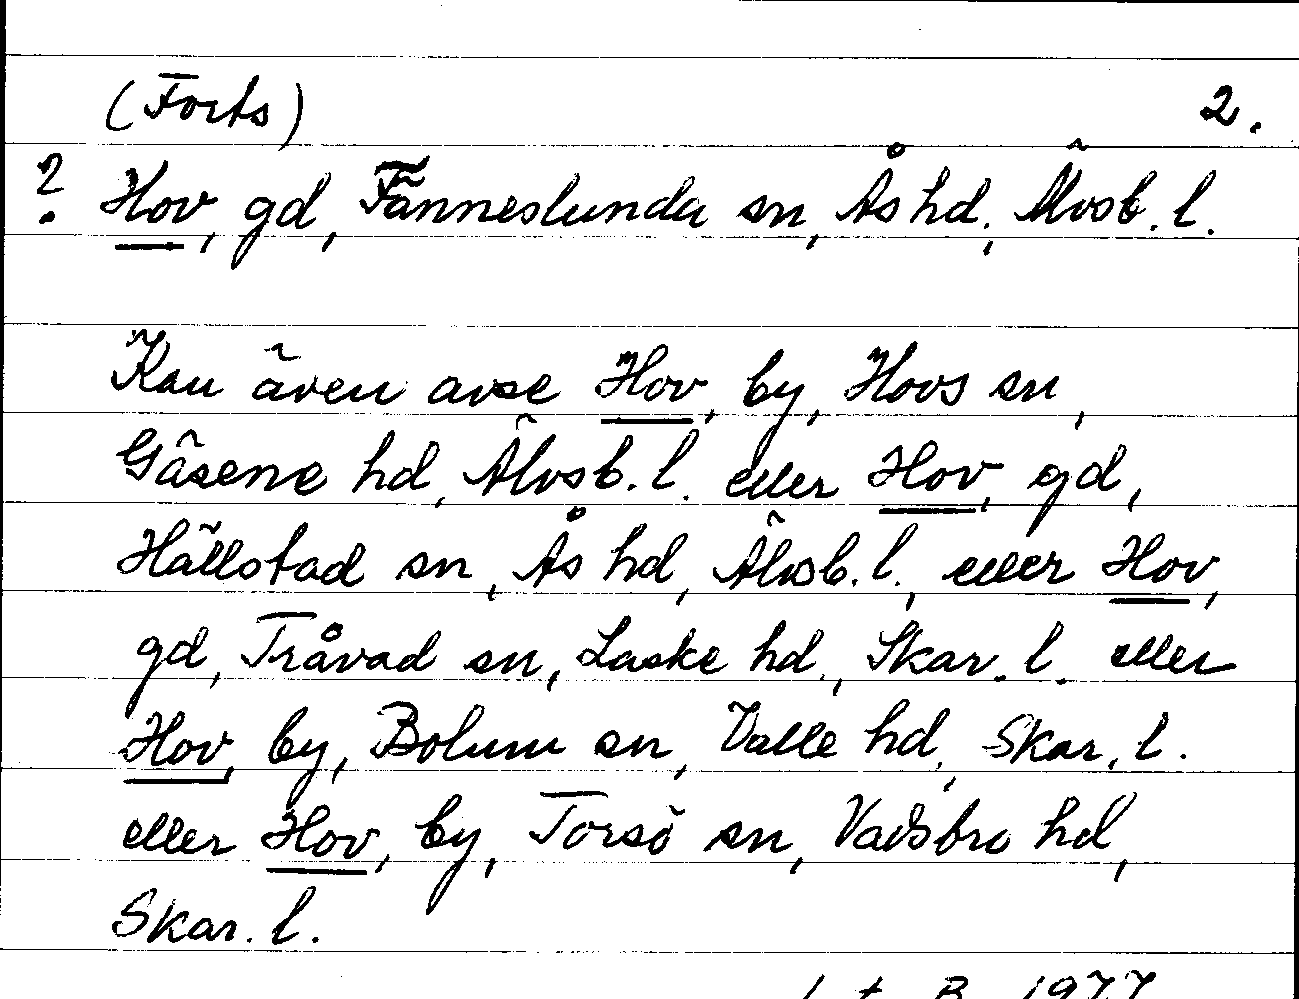 (Forts) 2.
? Hov, gd, Fänneslunda sn, Ås hd, Älvsb. l.
Kan även avse Hov, by, Hovs sn,
Gäsene hd, Älvsb. l. eller Hov, gd,
Hällstad sn, Ås hd, Älvsb. l., eller Hov,
gd, Tråvad sn, Laske hd., Skar. l. eller
Hov, by, Bolum sn, Valle hd, Skar. l.
eller Hov, by, Torsö sn, Vadsbro hd,
Skar. l.
1977